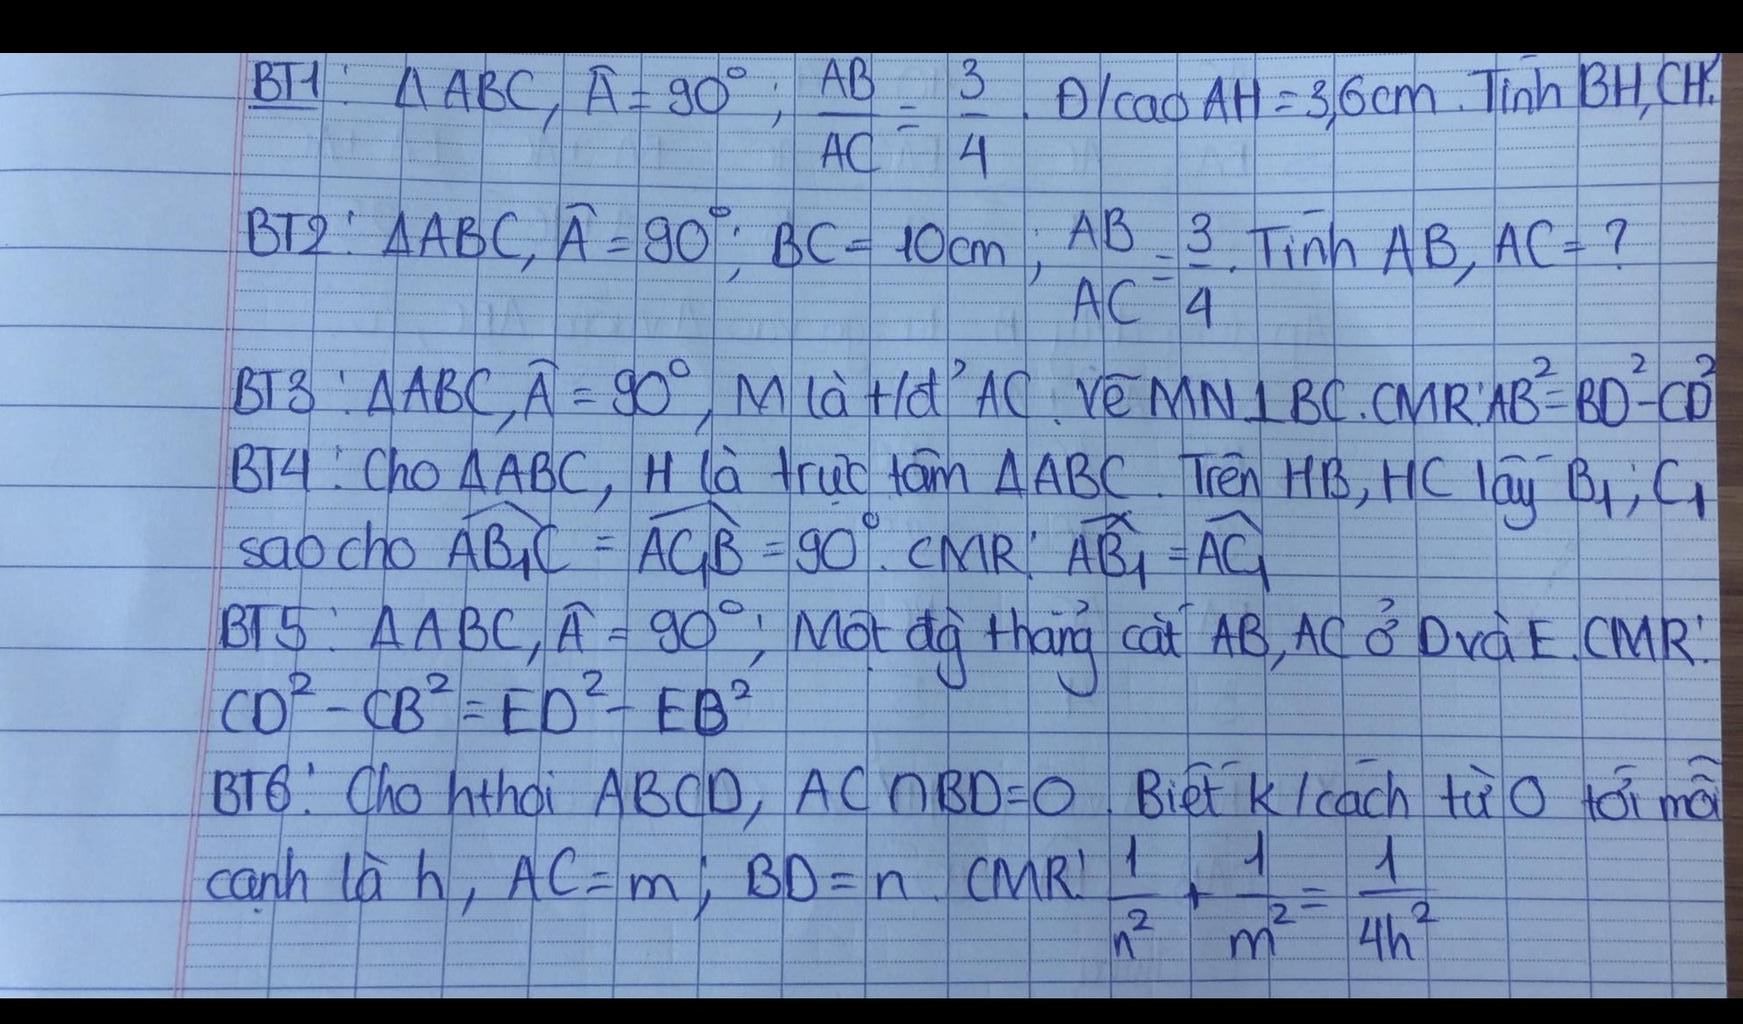 BT1: ΔABC, Â = 90°; AB/AC = 3/4. Đ/cao AH = 3,6cm. Tính BH, CH.
BT2: ΔABC, Â = 90°; BC = 10cm; AB/AC = 3/4. Tính AB, AC = ?
BT3: ΔABC, Â = 90°, M là t/đ' AC. Vẽ MN⊥BC. CMR: AB² = BD² - CD²
BT4: Cho ΔABC, H là trực tâm ΔABC. Trên HB, HC lấy B₁; C₁
sao cho AB₁C = AC₁B = 90°. CMR: AB₁ = AC₁
BT5: ΔABC, Â = 90°; Một đg thẳng cắt AB, AC ở D và E. CMR:
CD² - CB² = ED² - EB²
BT6: Cho hthoi ABCD, AC∩BD=O. Biết k/cách từ O tới mỗi
cạnh là h, AC = m; BD = n. CMR: 1/n² + 1/m² = 1/4h²